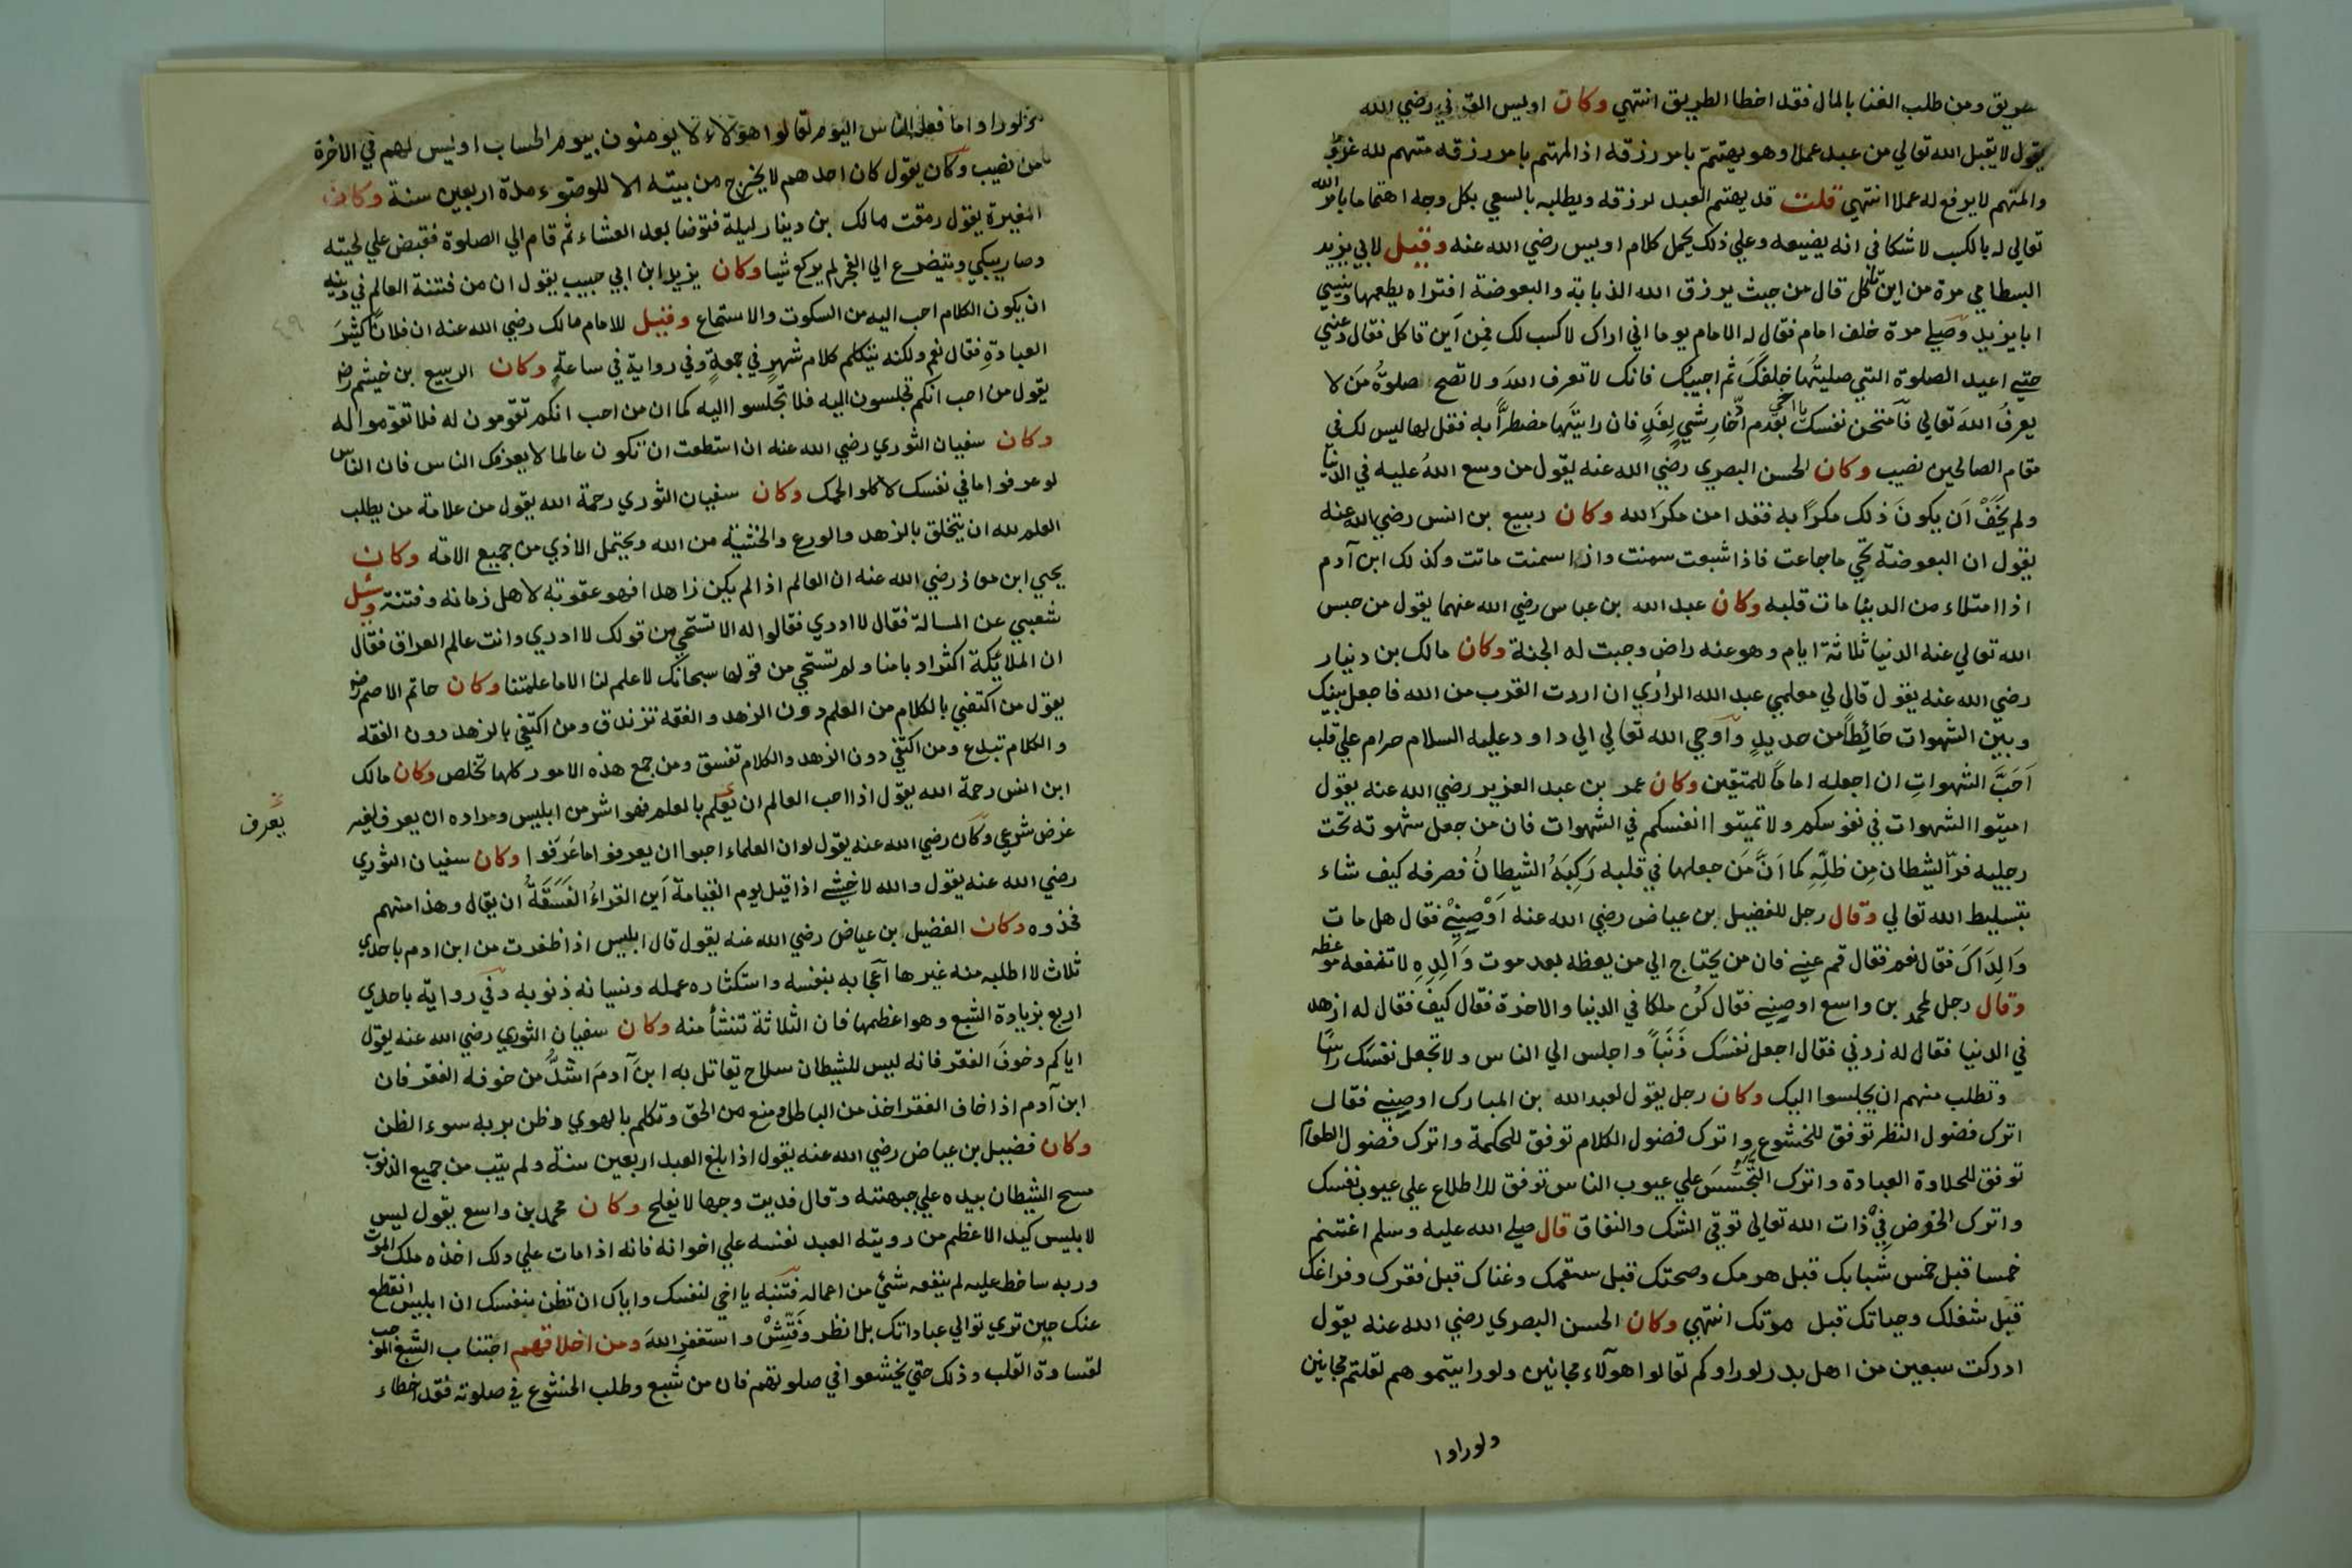 طريق ومن طلب الغنا بالمال فقد اخطا الطريق انتهي وكان اويس القرني رضي الله
يقول لا يقبل الله تعالي من عبد عملا وهو يهتم بامر رزقه اذ المهتم بامر رزقه متهم لله
والمتهم لا يرفع له عملا انتهي قلت قد يهتم العبد لرزقه ويطلبه بالسعي بكل وجه اهتماما بامر الله
تعالي له بالكسب لا شكا في انه يضيعه وعلي ذلك يحمل كلام اويس رضي الله عنه وقيل لابي يزيد
البسطامي مرة من اين تاكل قال من حيث يرزق الله الذبابة والبعوضة افتراه يطعمها وينسي
ابا يزيد وصلي مرة خلف امام فقال له الامام يوما اني اراك لا كسب لك فمن اين تاكل فقال دعني
حتي اعيد الصلوة التي صليتها خلفك ثم اجيبك فانك لا تعرف الله ولا تصح صلوة من لا
يعرف الله تعالي فامتحن نفسك يا اخي بعدم ادخار شي لغد فان رايتها مضطرا به فقل لها ليس لك في
مقام الصالحين نصيب وكان الحسن البصري رضي الله عنه يقول من وسع الله عليه في الدنيا
ولم يخف ان يكون ذلك مكرا به فقد امن مكر الله وكان ربيع بن انس رضي الله عنه
يقول ان البعوضة تحي ما جاعت فاذا شبعت سمنت واذا سمنت ماتت وكذلك ابن آدم
اذا امتلاء من الدنيا مات قلبه وكان عبد الله بن عباس رضي الله عنهما يقول من حبس
الله تعالي عنه الدنيا ثلاثة ايام وهو عنه راض وجبت له الجنة وكان مالك بن دينار
رضي الله عنه يقول قال لي معلمي عبد الله الرازي ان اردت القرب من الله فاجعل بينك
وبين الشهوات حائطا من حديد واوحي الله تعالي الي داود عليه السلام حرام علي قلب
احب الشهوات ان اجعله اماما للمتقين وكان عمر بن عبد العزيز رضي الله عنه يقول
اميتوا الشهوات في نفوسكم ولا تميتوا انفسكم في الشهوات فان من جعل شهوته تحت
رجليه فر الشيطان من ظله كما ان من جعلها في قلبه ركبه الشيطان فصرفه كيف شاء
بتسليط الله تعالي وقال رجل للفضيل بن عياض رضي الله عنه اوصني فقال هل مات
والداك فقال نعم فقال قم عني فان من يحتاج الي من يعظه بعد موت والده لا تنفعه موعظه
وقال رجل لمحمد بن واسع اوصني فقال كن ملكا في الدنيا والاخرة فقال كيف فقال له ازهد
في الدنيا فقال له زدني فقال اجعل نفسك ذنبا واجلس الي الناس ولا تجعل نفسك راسا
وتطلب منهم ان يجلسوا اليك وكان رجل يقول لعبد الله بن المبارك اوصني فقال
اترك فضول النظر توفق للخشوع واترك فضول الكلام توفق للحكمة واترك فضول الطعام
توفق للحلاوة العبادة واترك التجسس علي عيوب الناس توفق للاطلاع علي عيوب نفسك
واترك الخوض في ذات الله تعالي توقي الشك والنفاق قال صلي الله عليه وسلم اغتنم
خمسا قبل خمس شبابك قبل هرمك وصحتك قبل سقمك وغناك قبل فقرك وفراغك
قبل شغلك وحياتك قبل موتك انتهي وكان الحسن البصري رضي الله عنه يقول
ادركت سبعين من اهل بدر لو راوكم لقالوا هولاء مجانين ولو رايتموهم لقلتم مجانين
ولو راوا
ولو راوا ما فعله الناس اليوم لقالوا هولاء لا يومنون بيوم الحساب او ليس لهم في الاخرة
من نصيب وكان يقول كان احدهم لا يخرج من بيته الا للوضوء مدة اربعين سنة وكان
المغيرة يقول رمقت مالك بن دينار ليلة فتوضا بعد العشاء ثم قام الي الصلوة فقبض علي لحيته
وصار يبكي ويتضرع الي الفجر لم يركع شيا وكان يزيد ابن ابي حبيب يقول ان من فتنة العالم في دينه
ان يكون الكلام احب اليه من السكوت والاستماع وقيل للامام مالك رضي الله عنه ان فلانا كثير
العبادة فقال نعم ولكنه يتكلم كلام شهر في جمعة وفي رواية في ساعة وكان الربيع بن خيثم رض
يقول من احب انكم تجلسون اليه فلا تجلسوا اليه كما ان من احب انكم تقومون له فلا تقوموا له
وكان سفيان الثوري رضي الله عنه ان استطعت ان تكون عالما لا يعرفك الناس فان الناس
لو عرفوا ما في نفسك لاكلوا لحمك وكان سفيان الثوري رحمة الله يقول من علامة من يطلب
العلم لله ان يتخلق بالزهد والورع والخشية من الله ويحتمل الاذي من جميع الامة وكان
يحيي ابن معاذ رضي الله عنه ان العالم اذا لم يكن زاهدا فهو عقوبة لاهل زمانه وفتنة وسئل
شعبي عن المسالة فقال لا ادري فقالوا له الا تستحي من قولك لا ادري وانت عالم العراق فقال
ان الملائكة اكثر ادبا منا ولم تستحي من قولها سبحانك لا علم لنا الا ما علمتنا وكان حاتم الاصم رض
يقول من اكتفي بالكلام من العلم دون الزهد والفقه تزندق ومن اكتفي بالزهد دون الفقه
والكلام تبدع ومن اكتفي دون الزهد والكلام تفسق ومن جمع هذه الامور كلها تخلص وكان مالك
ابن انس رحمة الله يقول اذا احب العالم ان يعلم بالعلم فهو اشر من ابليس ومراده ان يعرف لغير
يعرف
غرض شرعي وكان رضي الله عنه يقول لو ان العلماء احبوا ان يعرفوا ما عرفوا وكان سفيان الثوري
رضي الله عنه يقول والله لاخشي اذا قيل يوم القيامة اين القراء الفسقة ان يقال وهذا منهم
فخذوه وكان الفضيل بن عياض رضي الله عنه يقول قال ابليس اذا ظفرت من ابن ادم باحدي
ثلاث لا اطلبه منه غيرها اعجابه بنفسه واستكثاره عمله ونسيانه ذنوبه وفي رواية باحدي
اربع بزيادة الشبع وهو اعظمها فان الثلاثة تنشأ منه وكان سفيان الثوري رضي الله عنه يقول
اياكم وخوف الفقر فانه ليس للشيطان سلاح يقاتل به ابن آدم اشد من خوفه الفقر فان
ابن آدم اذا خاف الفقر اخذ من الباطل ومنع من الحق وتكلم بالهوي وظن بربه سوء الظن
وكان فضيل بن عياض رضي الله عنه يقول اذا بلغ العبد اربعين سنة ولم يتب من جميع الذنوب
مسح الشيطان بيده علي جبهته وقال فديت وجها لا يفلح وكان محمد بن واسع يقول ليس
لابليس كيد الاعظم من روية العبد نفسه علي اخوانه فانه اذا مات علي ذلك اخذه ملك الموت
وربه ساخط عليه لم ينفعه شئ من اعماله فتنبه يا اخي لنفسك واياك ان تظن بنفسك ان ابليس انقطع
عنك حين تري توالي عباداتك بل انظر وفتش واستغفر الله ومن اخلاقهم اجتناب الشبع الموجب
لقساوة القلب وذلك حتي يخشعوا في صلوتهم فان من شبع وطلب الخشوع في صلوته فقد اخطاء